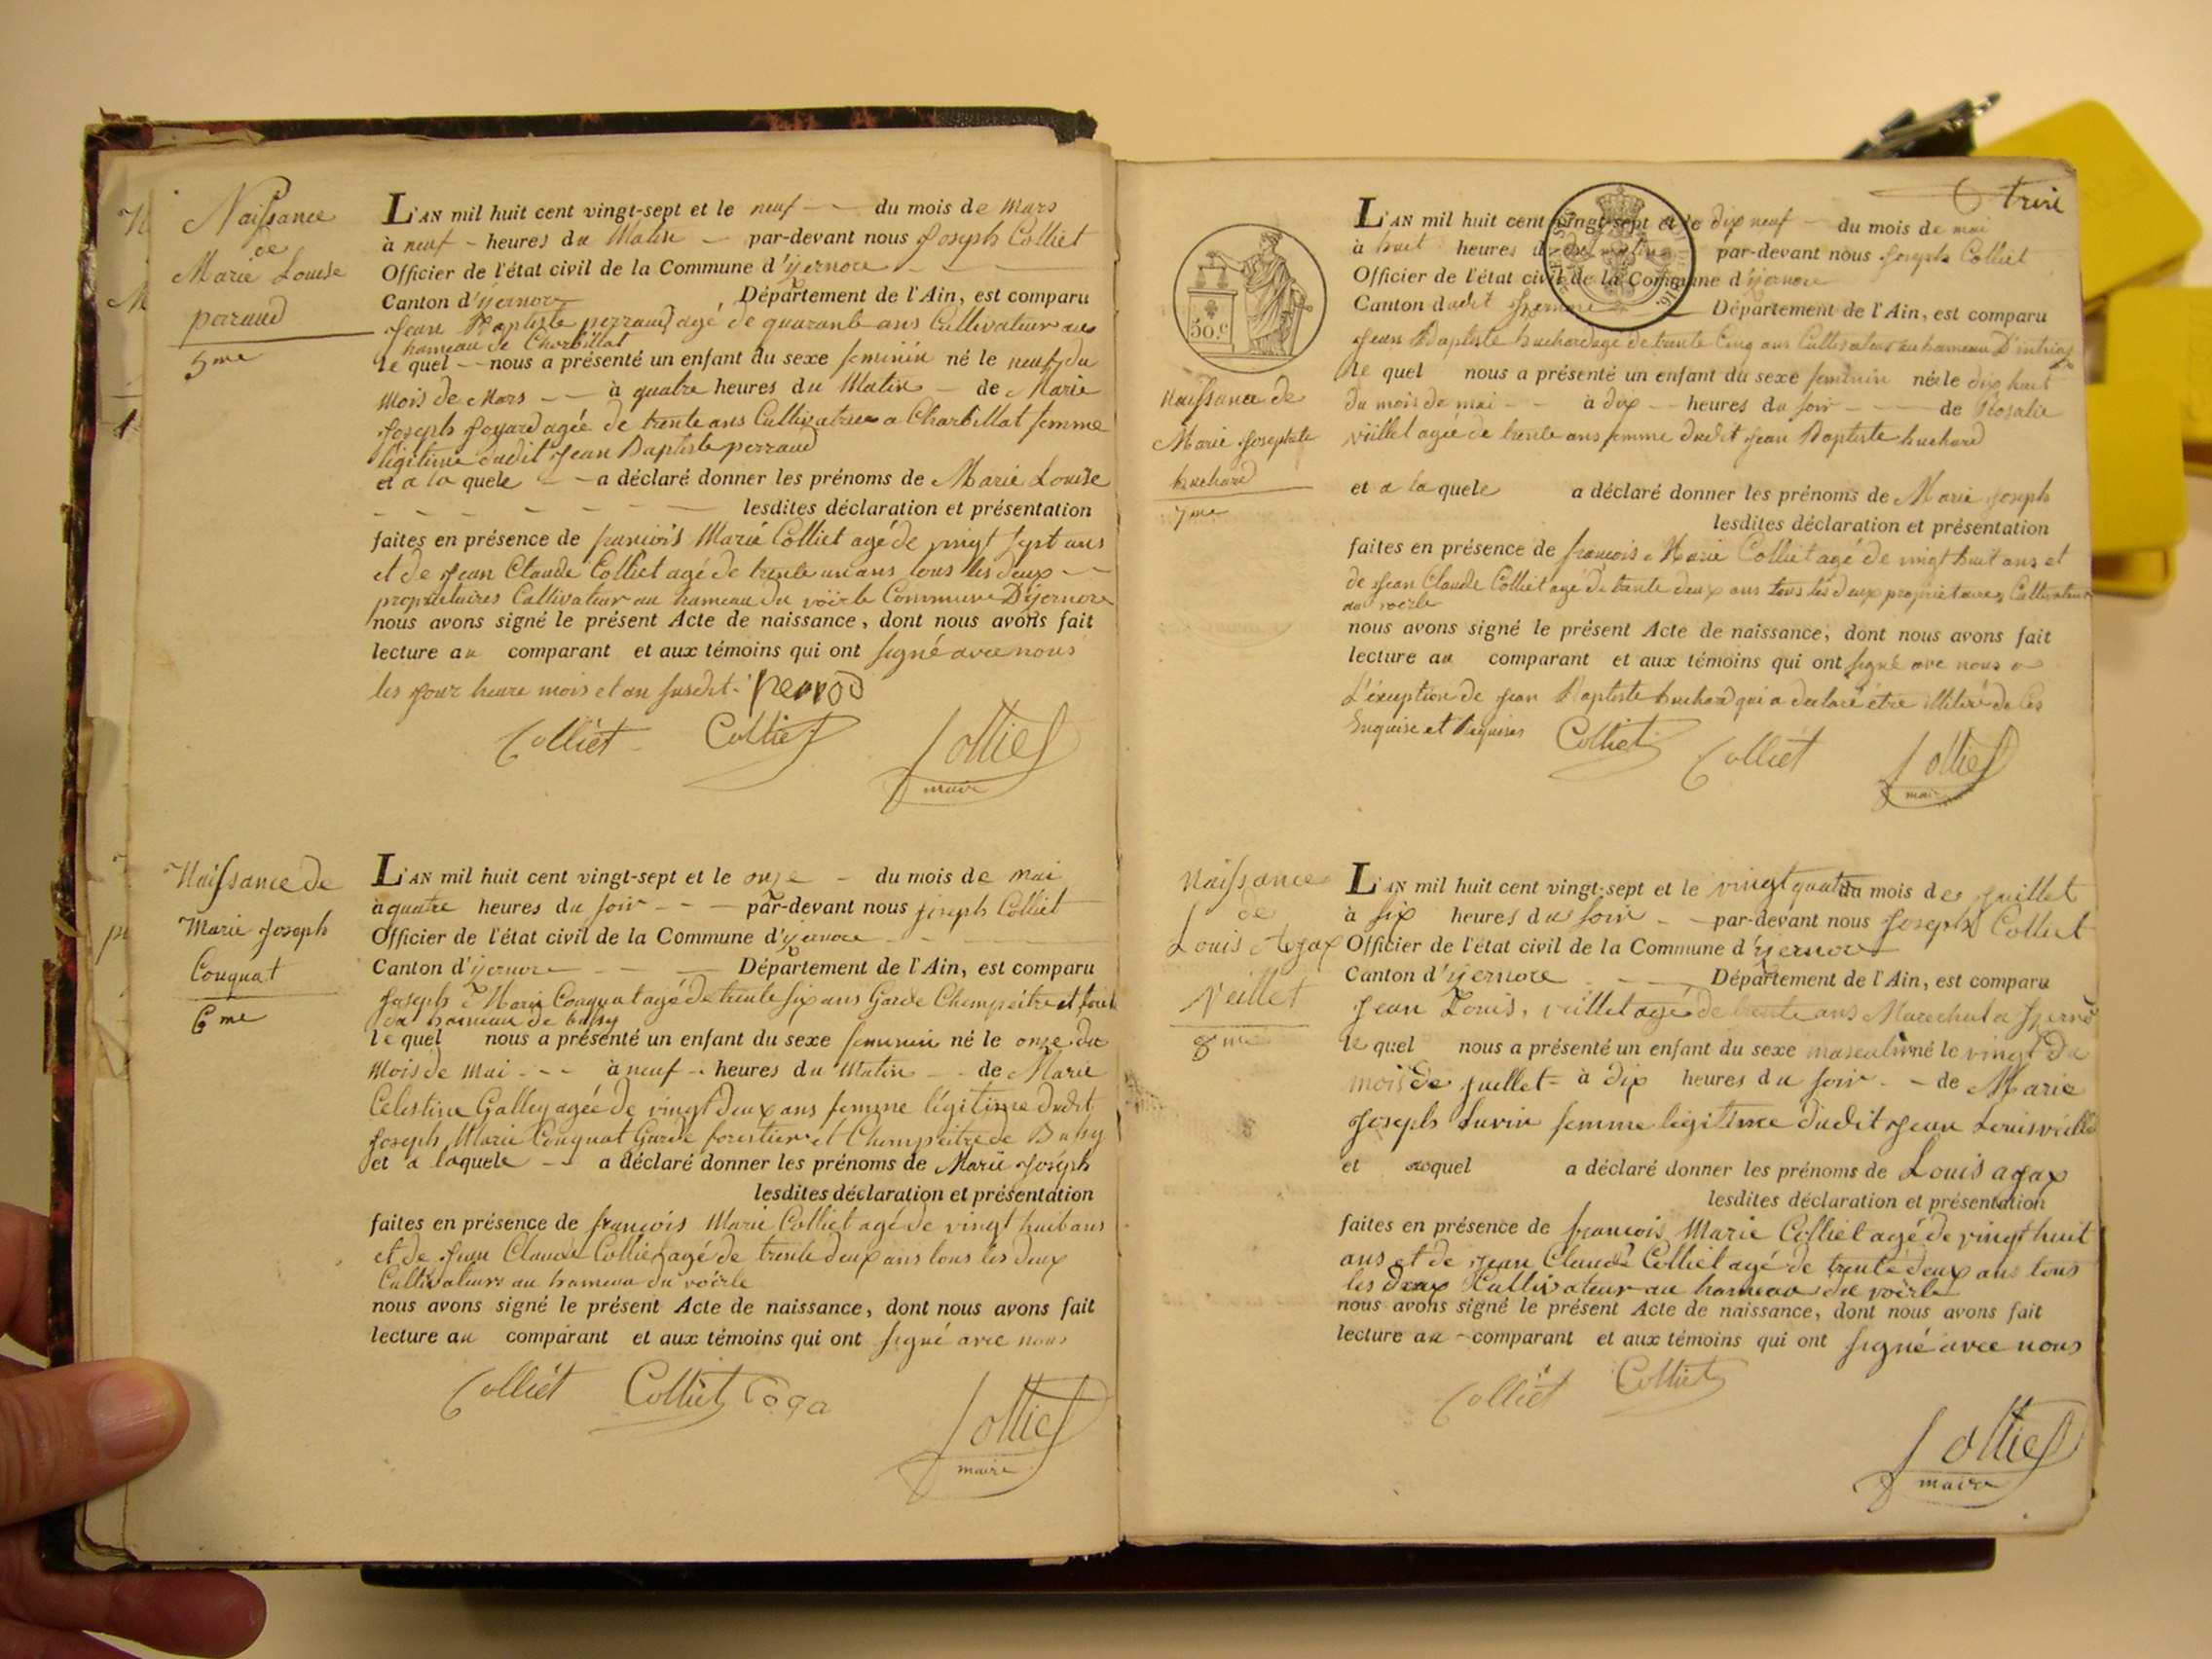 Naissance
de
Marie Louise
perraud
5me
L'AN mil huit cent vingt-sept et le neuf du mois de Mars
à neuf heures du Matin par-devant nous Joseph Colliet
Officier de l'état civil de la Commune d'yzernore
Canton d'yzernore, Département de l'Ain, est comparu
Jean Baptiste perraud agé de quarante ans Cultivateur au
hameau de Charbillat
le quel nous a présenté un enfant du sexe feminin né le neuf du
mois de Mars à quatre heures du Matin de Marie
Joseph Goyard agée de trente ans Cultivatrice a Charbillat femme
légitime dudit Jean Baptiste perraud
et a la quele a déclaré donner les prénoms de Marie Louise
lesdites déclaration et présentation
faites en présence de françois Marie Colliet agé de vingt sept ans
et de Jean Claude Colliet agé de trente un ans tous les deux
propriétaires Cultivateur au hameau du voërle Commune D'yzernore
nous avons signé le présent Acte de naissance, dont nous avons fait
lecture au comparant et aux témoins qui ont signé avec nous
les jour heure mois et an susdit.
Colliet Colliet Colliet
maire
Naissance de
Marie Joseph
Couquat
6me
L'AN mil huit cent vingt-sept et le onze du mois de mai
à quatre heures du soir par-devant nous joseph Colliet
Officier de l'état civil de la Commune d'yzernore
Canton d'yzernore Département de l'Ain, est comparu
Joseph Marie Couquat agé de trente six ans Garde Champeitre et forit
du hameau de bussy
le quel nous a présenté un enfant du sexe feminin né le onze du
Mois de Mai à neuf heures du Matin de Marie
Celestine Galley agée de vingt deux ans femme légitime dudit
Joseph Marie Couquat Garde forestier et Champeitre de Bussy
et a laquele a déclaré donner les prénoms de Marie Joseph
lesdites déclaration et présentation
faites en présence de françois Marie Colliet agé de vingt huit ans
et de Jean Claude Colliet agé de trente deux ans tous les deux
Cultivateurs au hameau du voërle
nous avons signé le présent Acte de naissance, dont nous avons fait
lecture au comparant et aux témoins qui ont signé avec nous
Colliet Colliet Coga
Colliet
maire
6 trixi
50.c
Naissance de
Marie Josephte
huchard
7me
L'AN mil huit cent vingt-sept et le dix neuf du mois de mai
à huit heures du matin par-devant nous Joseph Colliet
Officier de l'état civil de la Commune d'yzernore
Canton dudit Département de l'Ain, est comparu
Jean Baptiste huchard agé de trente Cinq ans Cultivateur au hameau D'intriax
le quel nous a présenté un enfant du sexe feminin né le dix huit
du mois de mai à dix heures du soir de Rosalie
vuillet agée de trente ans femme dudit Jean Baptiste huchard
et a la quele a déclaré donner les prénoms de Marie Joseph
lesdites déclaration et présentation
faites en présence de françois Marie Colliet agé de vingt huit ans et
de Jean Claude Colliet agé de trente deux ans tous les deux proprietaires Cultivateur
au voërle
nous avons signé le présent Acte de naissance, dont nous avons fait
lecture au comparant et aux témoins qui ont signé avec nous a
L'éxeption de Jean Baptiste huchard qui a declaré être illitéré de Ces
Enquise et Requises Colliet Colliet Colliet
maire
Naissance
de
Louis Agax
Veillet
8me
L'AN mil huit cent vingt-sept et le vingt quatre du mois de juillet
à six heures du soir par-devant nous Joseph Colliet
Officier de l'état civil de la Commune d'yzernore
Canton d'yzernore Département de l'Ain, est comparu
Jean Louis, veillet agé de trente ans Marechal a
le quel nous a présenté un enfant du sexe masculin né le vingt du
mois de juillet à dix heures du soir de Marie
Joseph Savin femme legitime dudit Jean Louis veillet
et auquel a déclaré donner les prénoms de Louis agax
lesdites déclaration et présentation
faites en présence de françois Marie Colliet agé de vingt huit
ans et de Jean Claude Colliet agé de trente deux ans tous
les deux Cultivateur au hameau du voërle
nous avons signé le présent Acte de naissance, dont nous avons fait
lecture au comparant et aux témoins qui ont signé avec nous
Colliet Colliet
Colliet
maire